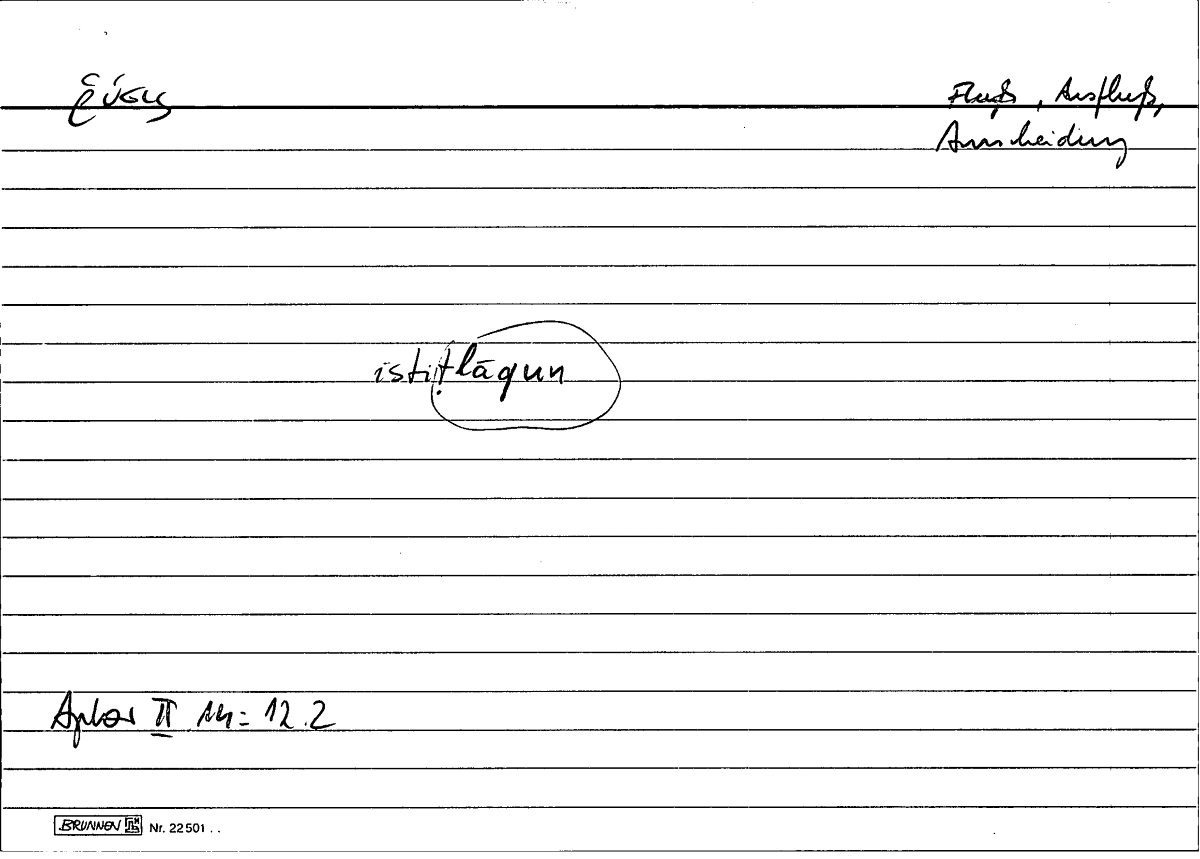 ῥύσις Fluß, Ausfluß,
Ausscheidung
istiṭlāqun
Aphor II 14 = 12.2
BRUNNEN Nr. 22501 ..